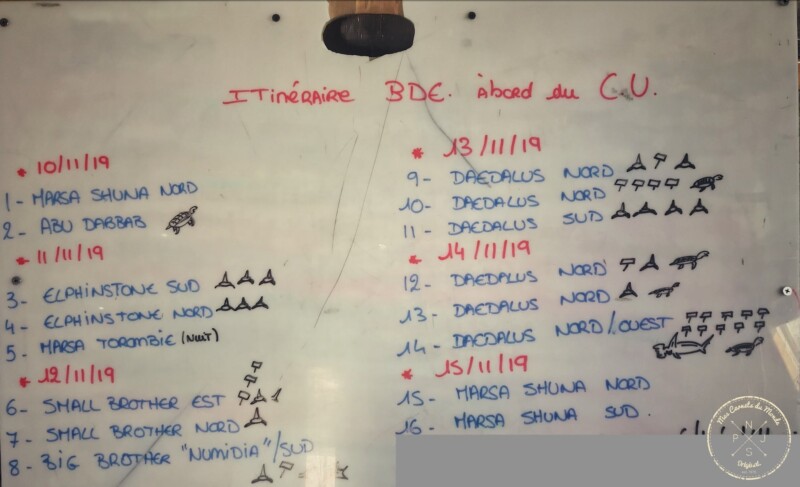 ITINÉRAIRE BDE. À bord du C.U.
* 10/11/19
1- MARSA SHUNA NORD
2- ABU DABBAB
* 11/11/19
3- ELPHINSTONE SUD
4- ELPHINSTONE NORD
5- MARSA TOROMBIE (NUIT)
* 12/11/19
6- SMALL BROTHER EST 1
7- SMALL BROTHER NORD
8- BIG BROTHER "NUMIDIA"/SUD
* 13/11/19
9- DAEDALUS NORD
10- DAEDALUS NORD
11- DAEDALUS SUD
* 14/11/19
12- DAEDALUS NORD
13- DAEDALUS NORD
14- DAEDALUS NORD/OUEST
* 15/11/19
15- MARSA SHUNA NORD
16- MARSA SHUNA SUD.
Mes Carnets du Monde
N
P J
S
Original